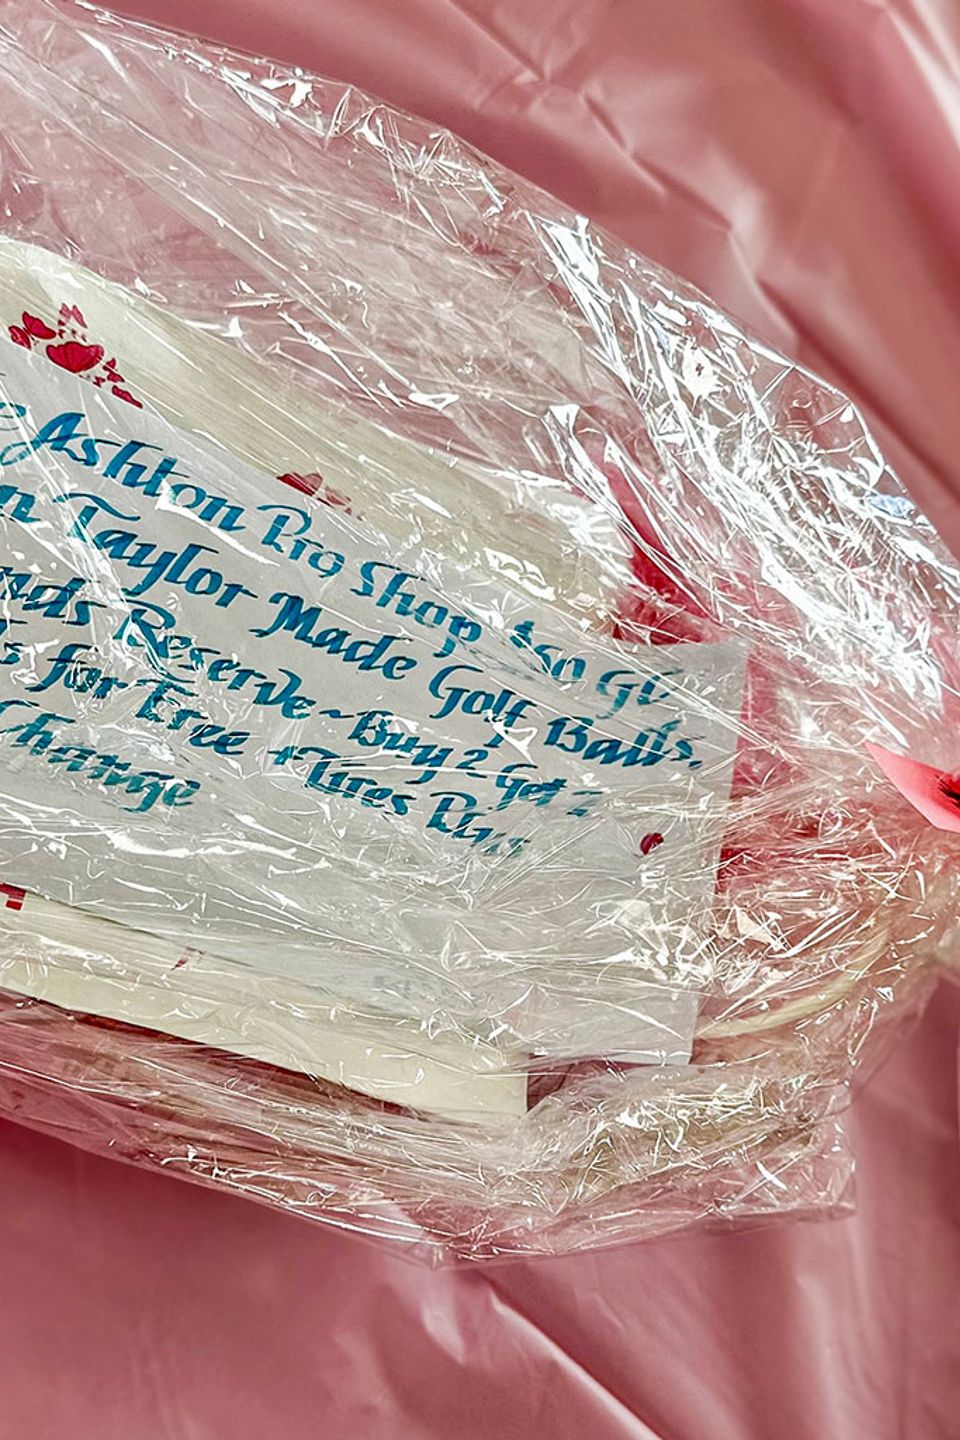 Ashton Pro Shop $50 G
Taylor Made Golf Balls,
Reserve~Buy 2 Get
for Free +Tires Plus
Change